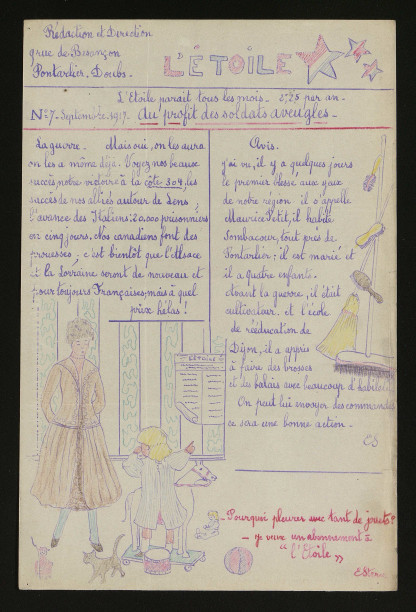 Rédaction et Direction
grue de Besançon
Pontarlier, Doubs.
L'ÉTOILE
L'Etoile parait tous les mois. 2f25 par an.
N°7. Septembre. 1917. Au profit des soldats aveugles.
La guerre. Mais oui, on les aura
on les a même déjà. Voyez nos beaux
succès, notre victoire à la côte 304, les
succès de nos alliés autour de Lens,
l'avance des Italiens: 20.000 prisonniers
en cinq jours. Nos canadiens font des
prouesses; c'est bientôt que l'Alsace
et la Lorraine seront de nouveau et
pour toujours Françaises, mais à quel
prix hélas!
Avis.
J'ai vu, il y a quelques jours
le premier blessé aux yeux
de notre région il s'appelle
Maurice Petit, il habite
Sombacour, tout près de
Pontarlier; il est marié et
il a quatre enfants.
Avant la guerre, il était
cultivateur. et l'école
de rééducation de
Dijon, il a appris
à faire des brosses
et des balais avec beaucoup d'habileté
On peut lui envoyer des commandes
ce sera une bonne action.
ES
L'ETOILE
- Pourquoi pleurer avec tant de jouets?
- Je veux un abonnement à
"l'Etoile"